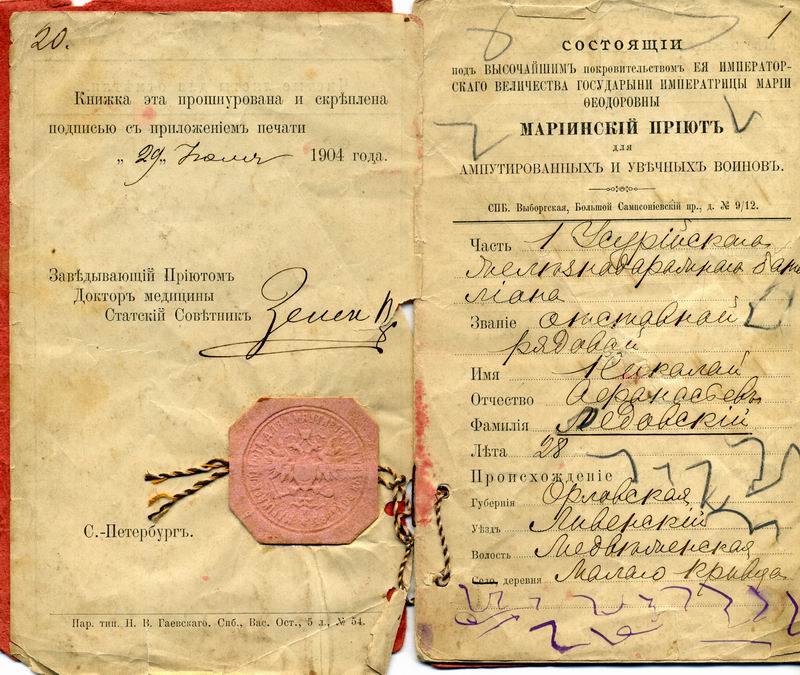 20.
Книжка эта прошнурована и скрѣплена
подписью съ приложеніемъ печати
„ 29 „ Іюля 1904 года.
Завѣдывающій Пріютомъ
Докторъ медицины
Статскій Совѣтникъ
С.-Петербургъ.
Пар. тип. Н. В. Гаевскаго. Спб., Вас. Ост., 5 л., № 54.
1
СОСТОЯЩІЙ
подъ ВЫСОЧАЙШИМЪ покровительствомъ ЕЯ ИМПЕРАТОР-
СКАГО ВЕЛИЧЕСТВА ГОСУДАРЫНИ ИМПЕРАТРИЦЫ МАРІИ
ѲЕОДОРОВНЫ
МАРІИНСКІЙ ПРІЮТЪ
для
АМПУТИРОВАННЫХЪ И УВѢЧНЫХЪ ВОИНОВЪ.
СПБ. Выборгская, Большой Сампсоніевскій пр., д. № 9/12.
Часть 1 Усурійскаго
ліона
Званіе отставной
рядовой
Имя Николай
Отчество Афанасьевъ
Фамилія Ледовскій
Лѣта 28
Происхожденіе
Губернія Орловская
Уѣздъ Ливенскій
Волость
Село, деревня Малаго